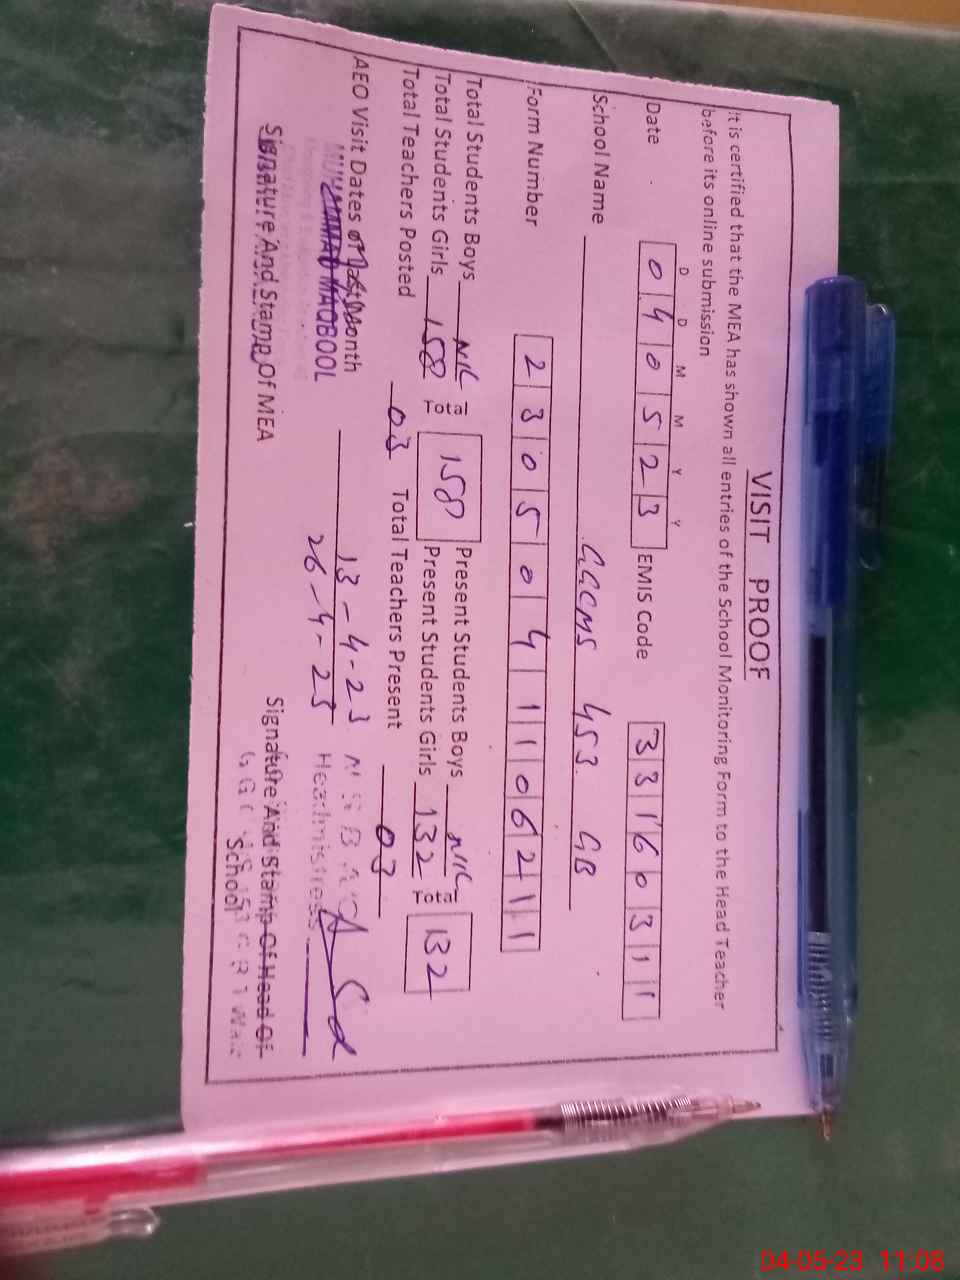 VISIT PROOF
It is certified that the MEA has shown all entries of the School Monitoring Form to the Head Teacher
before its online submission
D D M M Y Y
Date 0 4 0 5 2 3 EMIS Code 3 3 1 6 0 3 1 1
School Name GGCMS 453 GB
Form Number 2 3 0 5 0 4 1 1 0 6 2 1 1
Total Students Boys NIL Present Students Boys NIL
Total Students Girls 158 Total 158 Present Students Girls 132 Total 132
Total Teachers Posted 03 Total Teachers Present 03
AEO Visit Dates of Last Month 13-4-23
26-4-23
MUHAMMAD MAQBOOL
Headmistress
Signature And Stamp Of MEA Signature And Stamp Of Head Of
School
04-05-23 11:08